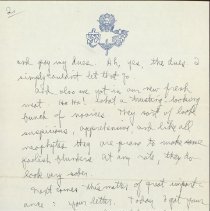 2.
and pay my dues. Ah, yes, the dues. I
simply couldn't let that go.
And, also we got in our new fresh
meat. Ho Ho! What a "trusting" looking
bunch of novices. They sort of look
suspicious, apprehensive and like all
neophytes they are prone to make some
foolish blunders. At any rate, they do
look very sober.
Next comes this matter of great import-
ance: your letter. Today I got your